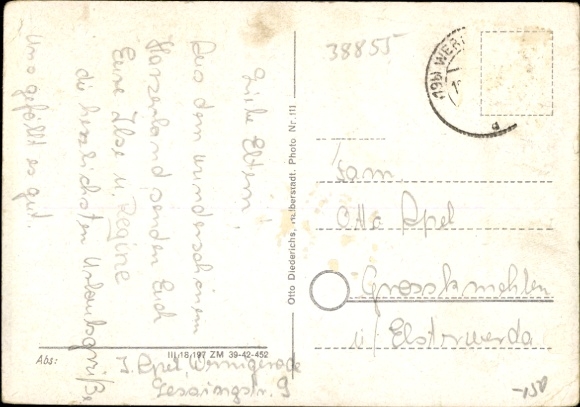 Liebe Eltern!
Aus dem wunderschönen
Harzerland senden Euch
Eure Ilse u. Regine
die herzlichsten Urlaubsgrüße
Uns gefällt es gut.
Abs:
I. Apel, Wernigerode
Lessingstr. 9
III/18/197 ZM 39-42-452
Otto Diederichs, Halberstadt. Photo Nr. 111
38855
(19b) WER
d
Fam.
Otto Apel
Grosskmehlen
ü/ Elsterwerda
-150